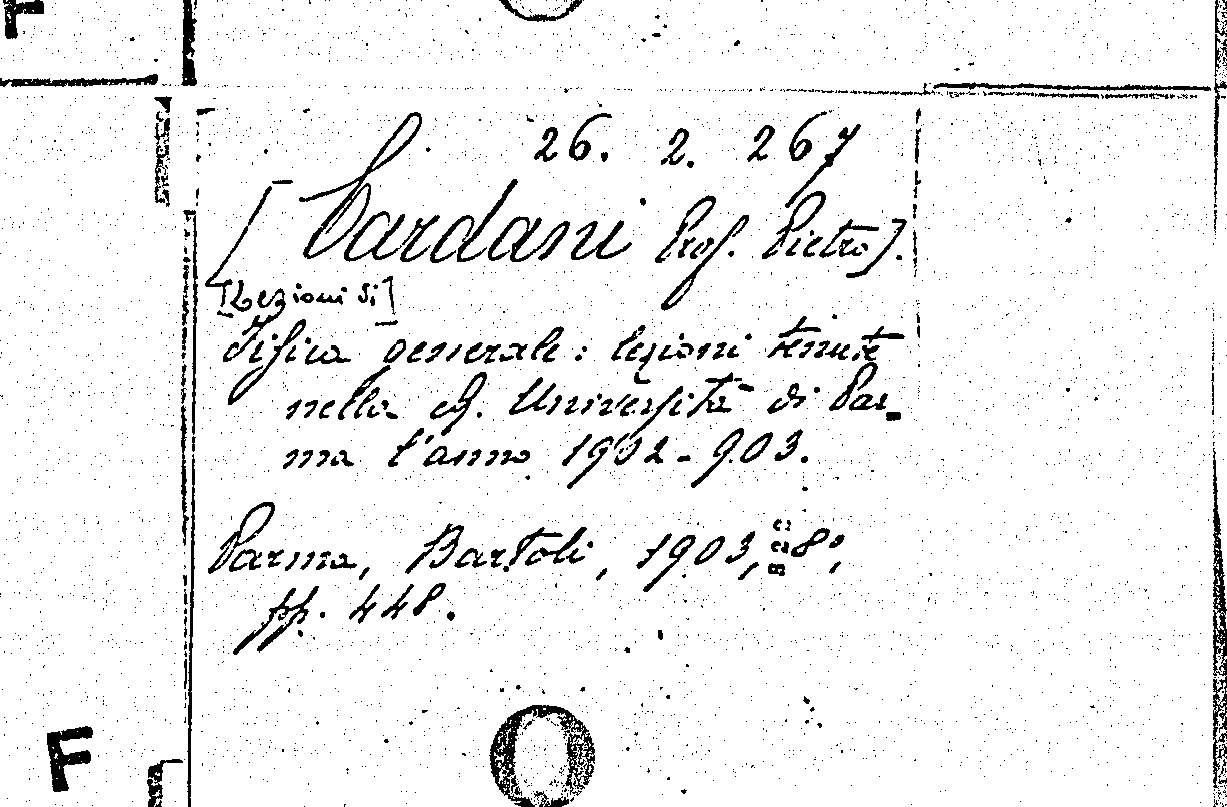 F
26. 2. 267
[Cardani Prof. Pietro].
[Lezioni di]
Fisica generale: lezioni tenute
nella R. Università di Par-
ma l'anno 1902-903.
Parma, Bartoli, 1903, 8°,
pp. 448.
F